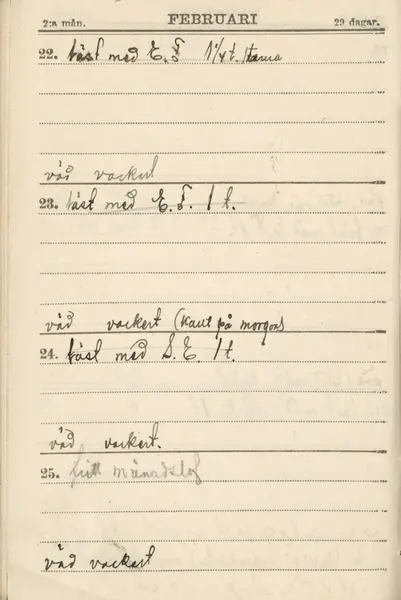 2:a mån. FEBRUARI 29 dagar.
22. läst med E. F. 1 1/4 t. hema
väd vackert
23. läst med E. F. 1 t.
väd vackert (kallt på morgon)
24. läst med S. E. 1 t.
väd vackert.
25. fritt månadslof
väd vackert